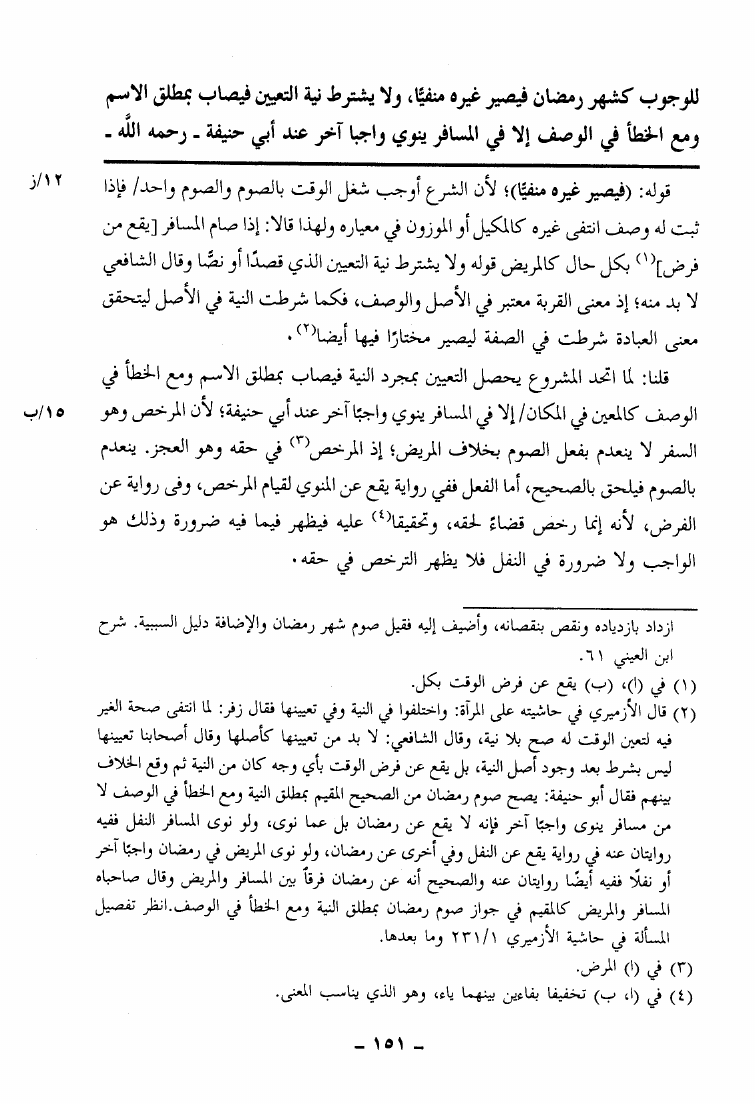 للوجوب كشهر رمضان فيصير غيره منفيًّا، ولا يشترط نية التعيين فيصاب بمطلق الاسم
ومع الخطأ في الوصف إلا في المسافر ينوي واجبا آخر عند أبي حنيفة ـ رحمه اللَّه ـ
قوله: (فيصير غيره منفيًّا)؛ لأن الشرع أوجب شغل الوقت بالصوم والصوم واحد/ فإذا ١٢/ز
ثبت له وصف انتفى غيره كالمكيل أو الموزون في معياره ولهذا قالا: إذا صام المسافر [يقع من
فرض](١) بكل حال كالمريض قوله ولا يشترط نية التعيين الذي قصدًا أو نصًّا وقال الشافعي
لا بد منه؛ إذ معنى القربة معتبر في الأصل والوصف، فكما شرطت النية في الأصل ليتحقق
معنى العبادة شرطت في الصفة ليصير مختارًا فيها أيضا(٢).
قلنا: لما اتحد المشروع يحصل التعيين بمجرد النية فيصاب بمطلق الاسم ومع الخطأ في
الوصف كالمعين في المكان/ إلا في المسافر ينوي واجبًا آخر عند أبي حنيفة؛ لأن المرخص وهو ١٥/ب
السفر لا ينعدم بفعل الصوم بخلاف المريض؛ إذ المرخص(٣) في حقه وهو العجز. ينعدم
بالصوم فيلحق بالصحيح، أما الفعل ففي رواية يقع عن المنوي لقيام المرخص، وفى رواية عن
الفرض، لأنه إنما رخص قضاءً لحقه، وتحقيقا(٤) عليه فيظهر فيما فيه ضرورة وذلك هو
الواجب ولا ضرورة في النفل فلا يظهر الترخص في حقه.
ازداد بازدياده ونقص بنقصانه، وأضيف إليه فقيل صوم شهر رمضان والإضافة دليل السببية. شرح
ابن العيني ٦١.
(١) في (أ)، (ب) يقع عن فرض الوقت بكل.
(٢) قال الأزميري في حاشيته على المرآة: واختلفوا في النية وفي تعيينها فقال زفر: لما انتفى صحة الغير
فيه لتعين الوقت له صح بلا نية، وقال الشافعي: لا بد من تعيينها كأصلها وقال أصحابنا تعيينها
ليس بشرط بعد وجود أصل النية، بل يقع عن فرض الوقت بأي وجه كان من النية ثم وقع الخلاف
بينهم فقال أبو حنيفة: يصح صوم رمضان من الصحيح المقيم بمطلق النية ومع الخطأ في الوصف لا
من مسافر ينوى واجبًا آخر فإنه لا يقع عن رمضان بل عما نوى، ولو نوى المسافر النفل ففيه
روايتان عنه في رواية يقع عن النفل وفي أخرى عن رمضان، ولو نوى المريض في رمضان واجبًا آخر
أو نفلًا ففيه أيضًا روايتان عنه والصحيح أنه عن رمضان فرقاً بين المسافر والمريض وقال صاحباه
المسافر والمريض كالمقيم في جواز صوم رمضان بمطلق النية ومع الخطأ في الوصف.انظر تفصيل
المسألة في حاشية الأزميري ٢٣١/١ وما بعدها.
(٣) في (ا) المرض.
(٤) في (ا، ب) تخفيفا بفاءين بينهما ياء، وهو الذي يناسب المعنى.
ـ ١٥١ ـ